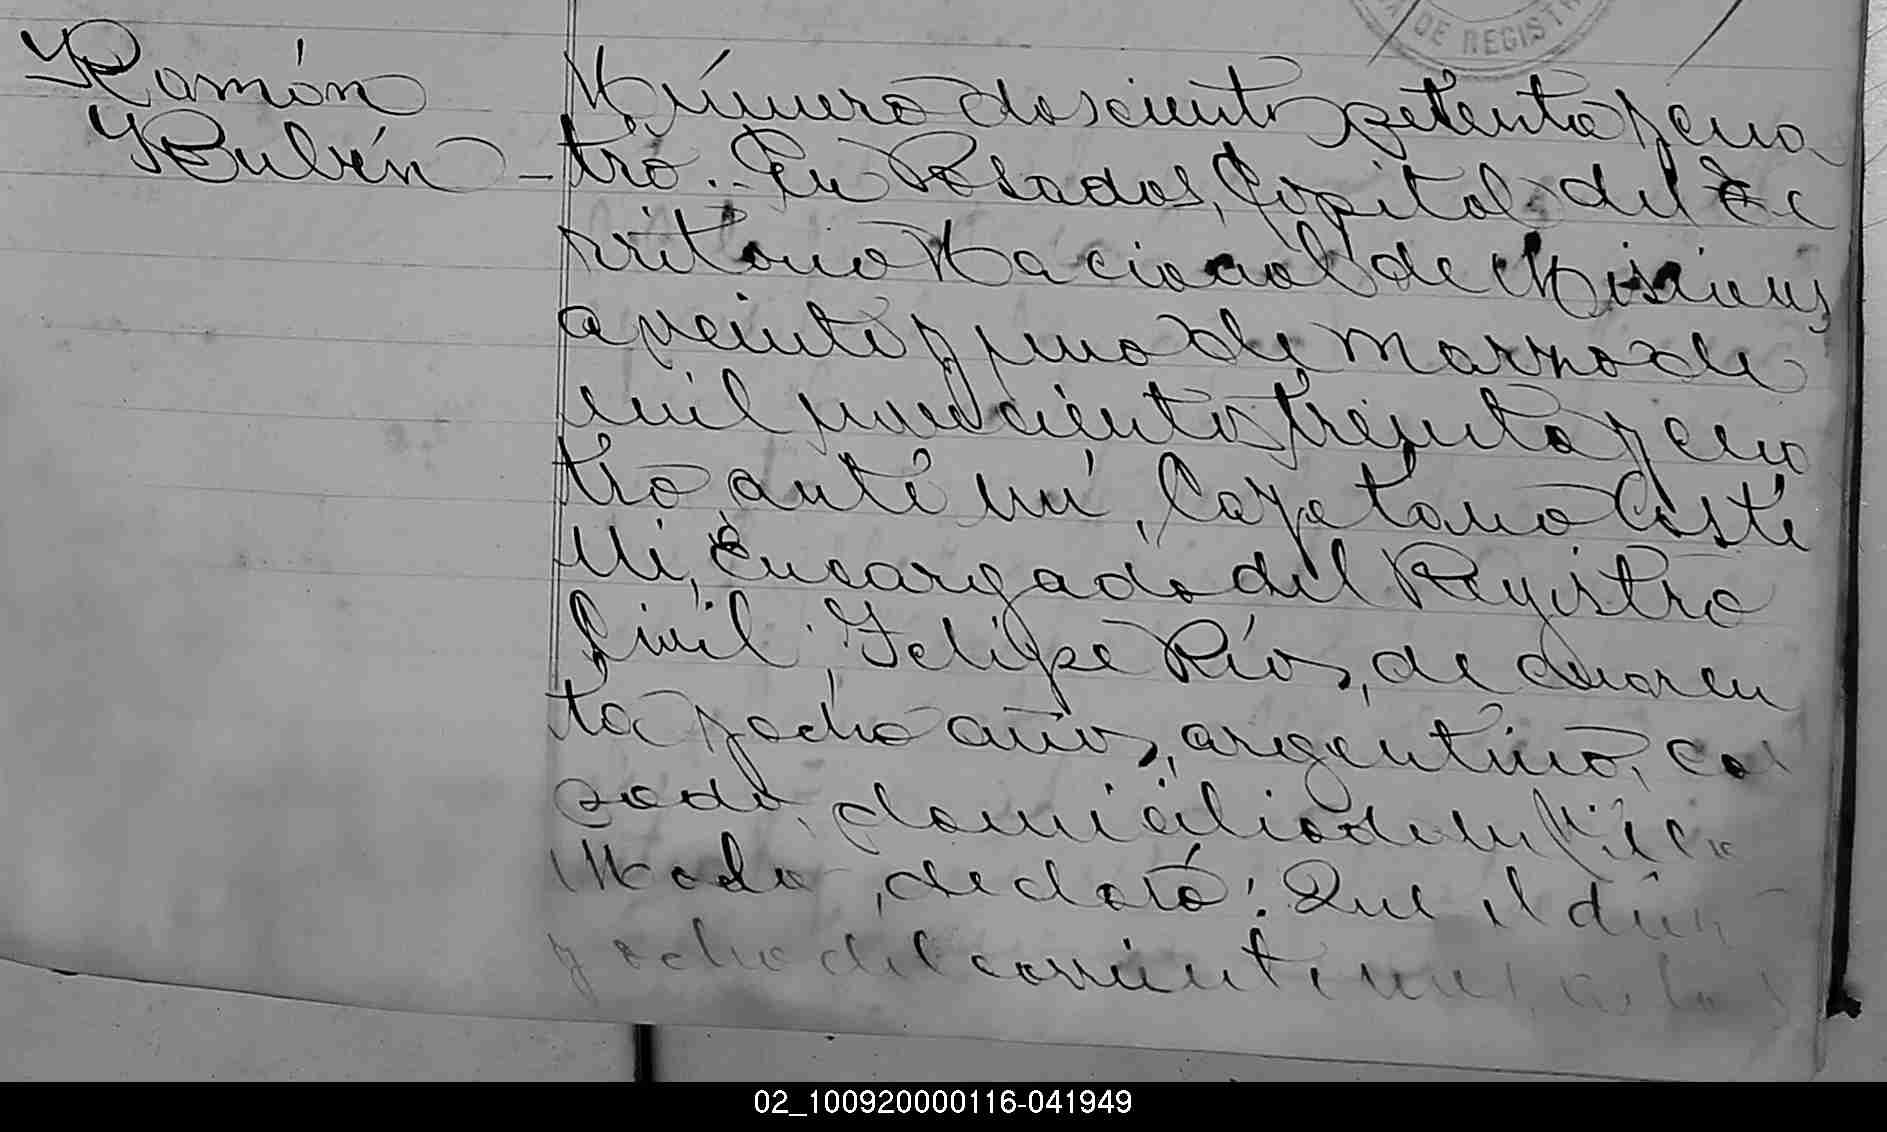 DE REGISTR
Ramón
Rubén -
Número doscientos setenta y cua
tro. En Posadas, Capital del Te
rritorio Nacional de Misiones
a veinte y uno de marzo de
mil novecientos treinta y cua
tro, ante mí, Cayetano Caste
lli, Encargado del Registro
Civil, Felipe Ríos, de cuaren
ta y ocho años, argentino, ca
sado, domiciliado en
declaró: Que el día
y ocho del corriente mes, a las
02_100920000116-041949